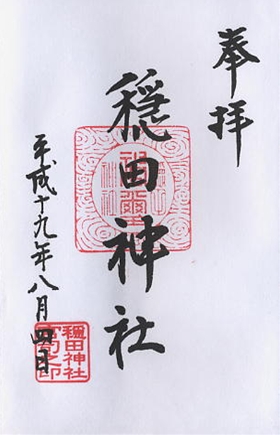 奉拝
穏田神社
平成十九年八月四日
穏田神社